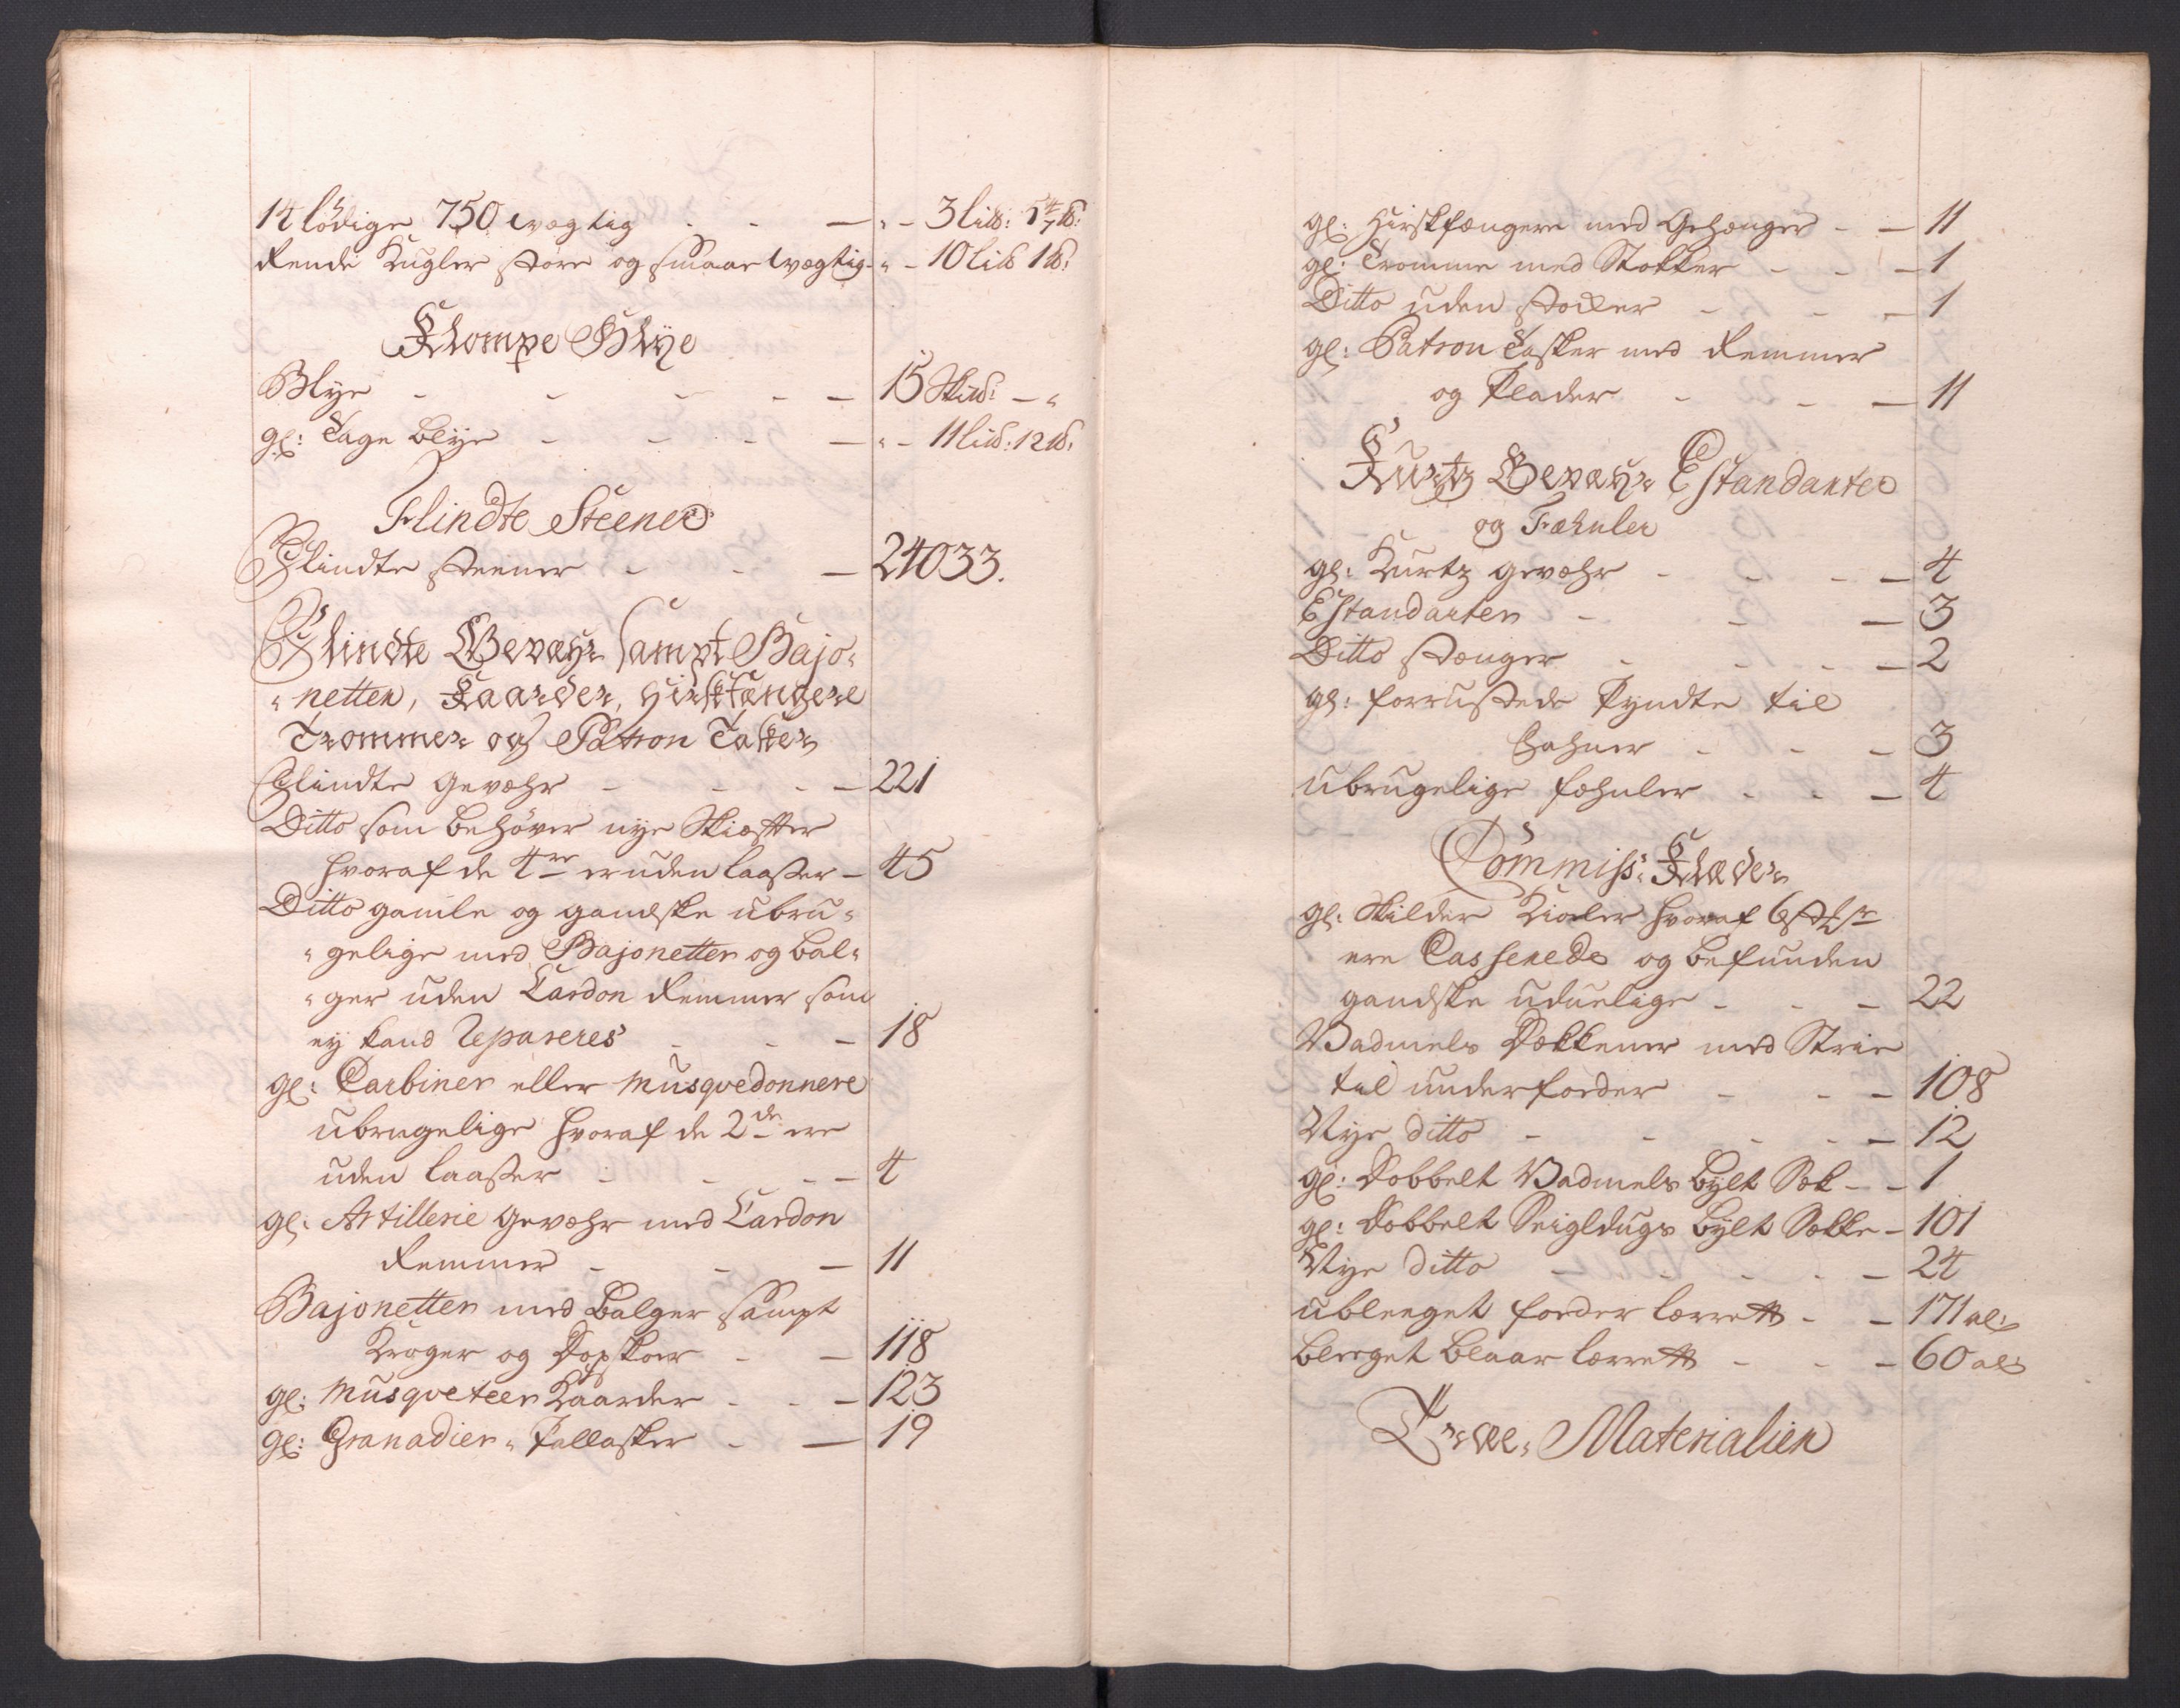 14 lödige 750 wægtig - - — „ - 3 lit℔: 5 4/7 ℔:
Rende Kugler store og smaae wægtig - „ - 10 Lit℔ 1 ℔:
Klompe Blye
Blye - - - - — 15 Skit℔: — „
gl: Tage Blye - - - — „ - 11 Lit℔: 12 ℔:
Flindte Steene
Flindte steener - - — 24033.
Flindte Gevæhr Sampt Bajo„
„netter, Kaarder, Hirsfængere
Trommer og Patron Tasker
Flindte Gevæhr - - - — 221
Ditto som behöver nye Skiæfter
hvoraf de 4re er uden laaßer — 45
Ditto gamle og gandske ubru„
„gelige med Bajonetter og bal„
„ger uden Cardon Remmer som
ey kand Repareres - - — 18
gl: Carbiner eller Musqvedonnere
ubrugelige hvoraf de 2de ere
uden laaßer - - - — 4
gl: Artillerie Gevæhr med Cardon
Remmer - - — 11
Bajonetter med Balger sampt
Kroger og Dopskoer - — 118
gl: Musqveteer Kaarder - - — 123
gl: Granadier„ Pallasker - — 19
gl: Hirsfængere med Gehænger - — 11
gl: Tromme med Stokker - - — 1
Ditto uden stocker - - — 1
gl: Patron Tasker med Remmer
og Plader - - — 11
Kurtz Gevæhr Estandarter
og Fæhnler
gl: Kurtz gevæhr - - - — 4
Estandarter - - — 3
Ditto stænger - - - — 2
gl: forrustede Pyndte til
Fahner - - — 3
ubrugelige fæhnler - - — 4
Commiss: Klæder
gl: Skilder Kioler hvoraf 6 st
ere Casserede og befunden
gandske uduelige - - — 22
Vadmels Dækkener med Strie
til underforder - - — 108
Nye ditto - - - - — 12
gl: Dobbelt Vadmels bylt Sæk - — 1
gl: Dobbelt Seigldugs bylt Sække — 101
Nye ditto - - - - — 24
ubleeget forder lærrett - — 171 al:
bleeget blaar lærrett - - — 60 al:
Træe„ Materialier